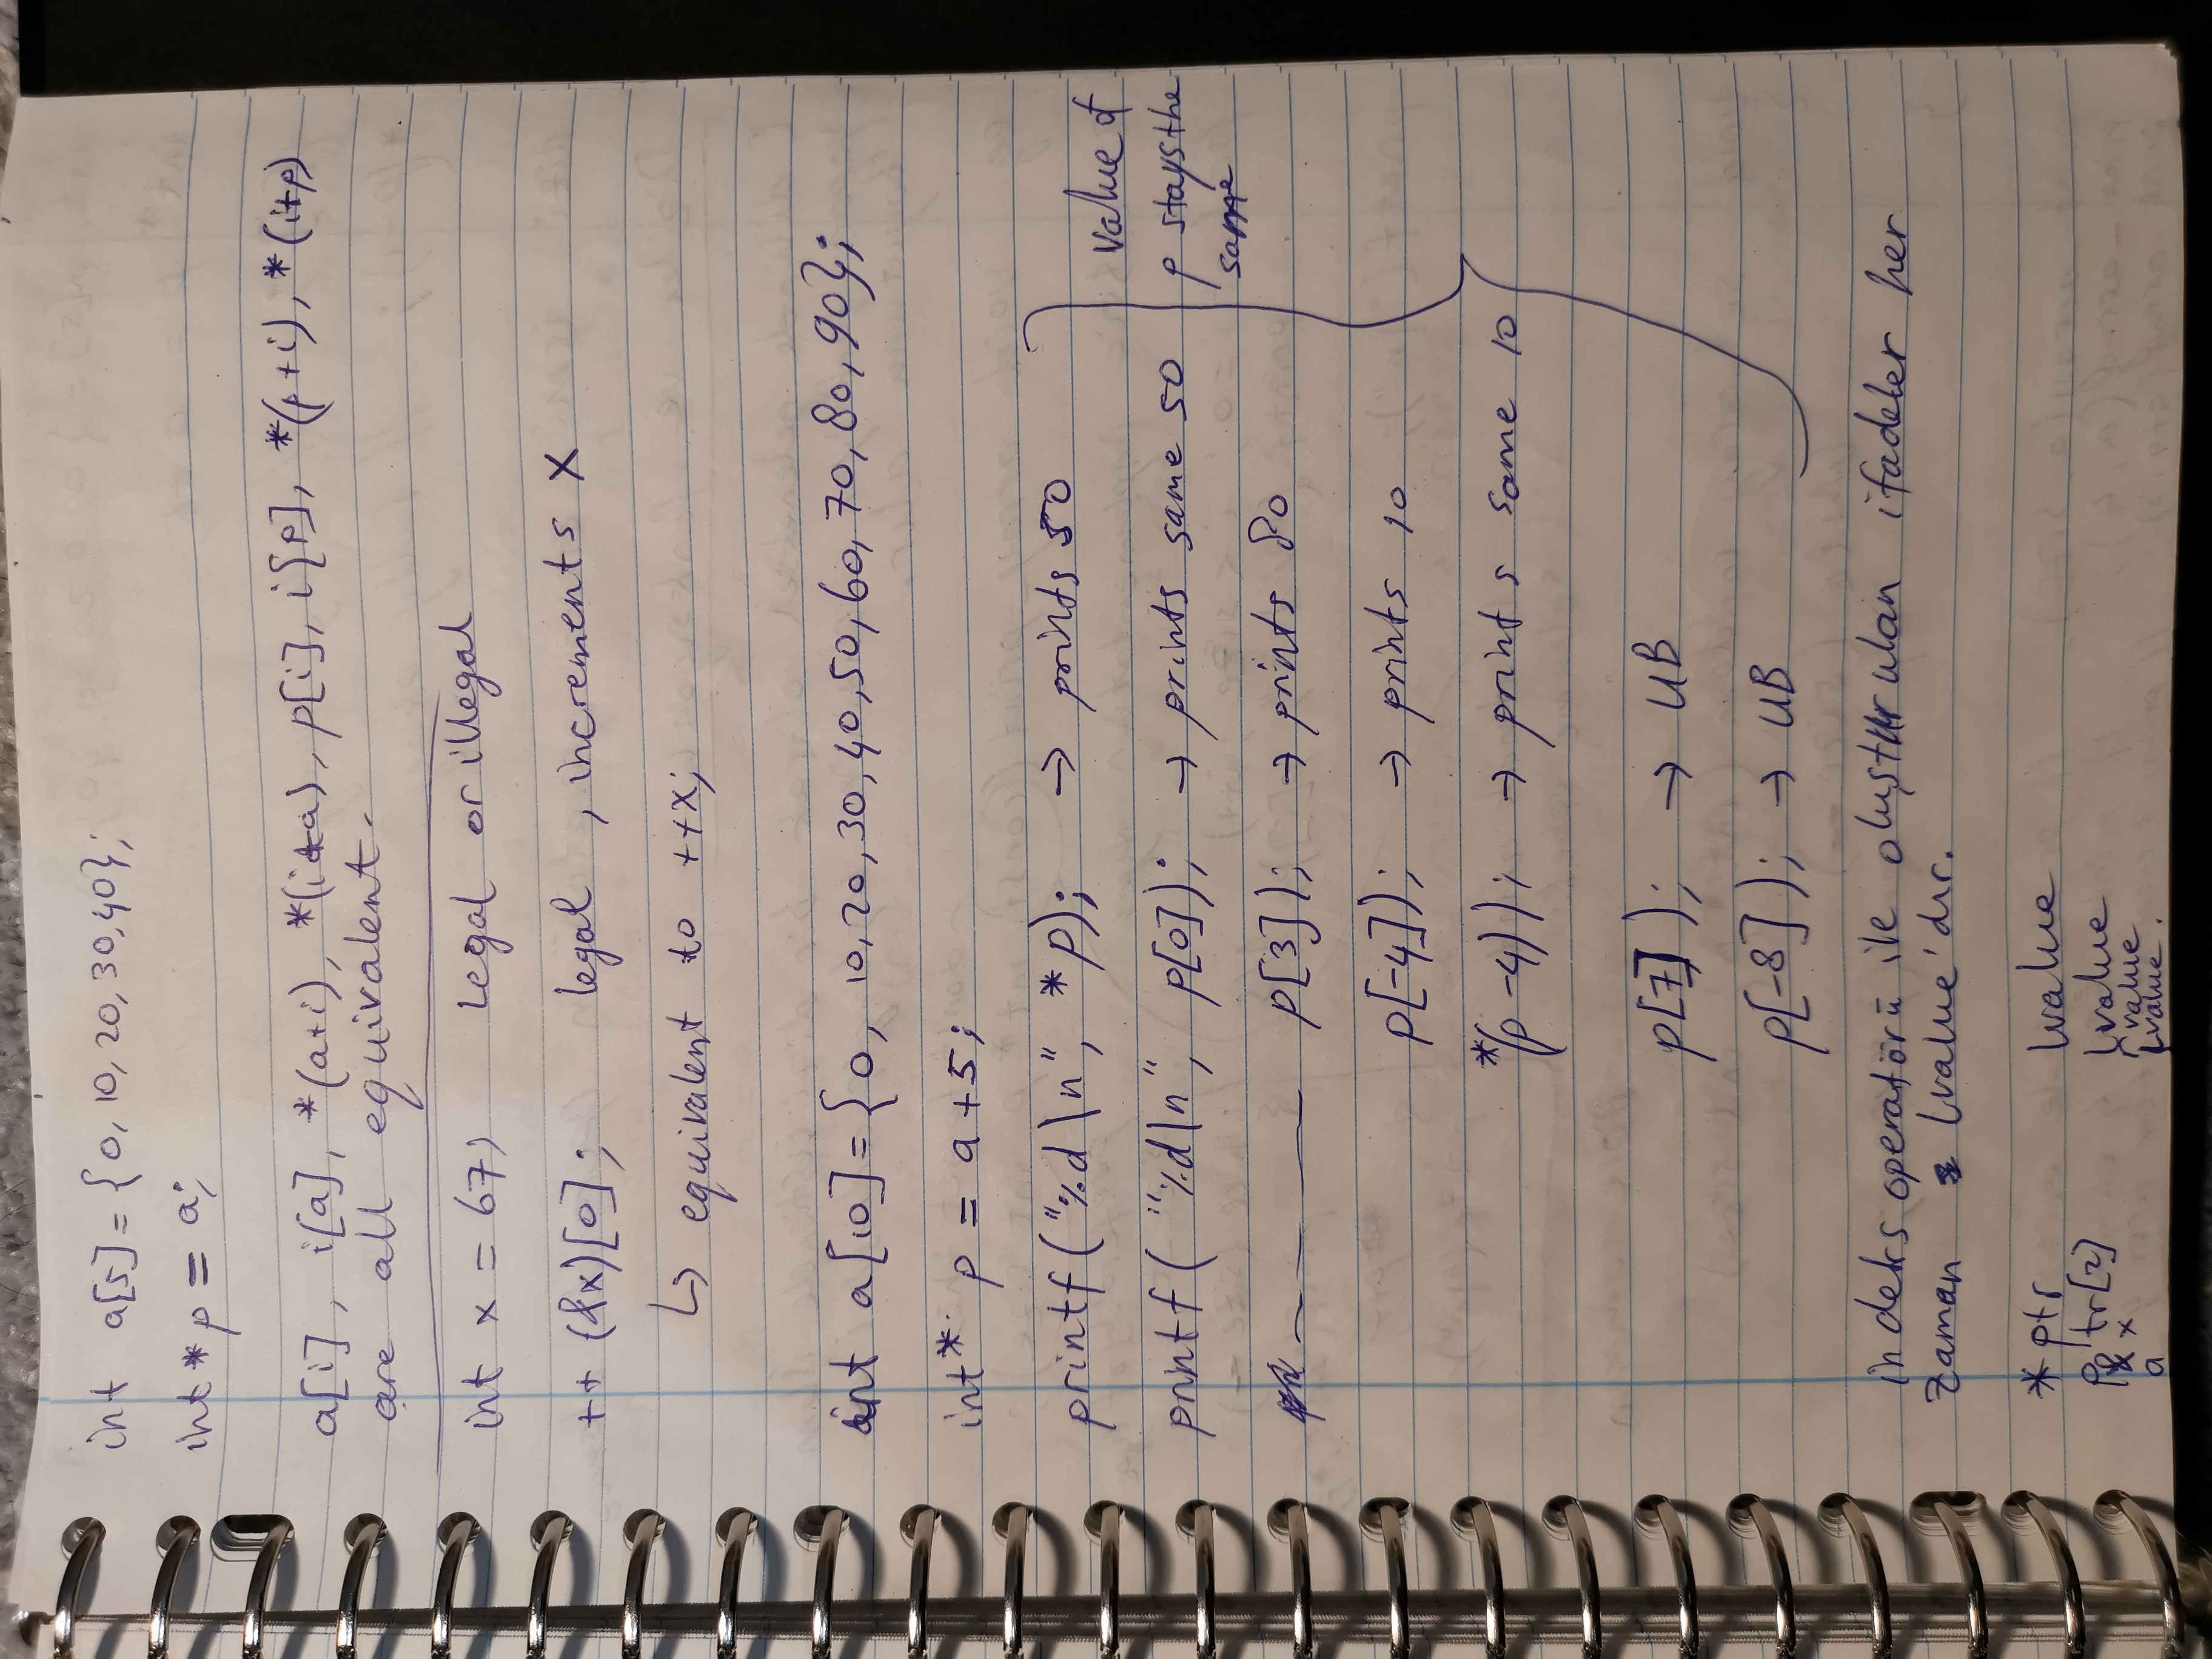 int a[5] = {0, 10, 20, 30, 40};
int* p = a;
a[i], i[a], *(a+i), *(i+a), p[i], i[p], *(p+i), *(i+p)
are all equivalent.
int x = 67; Legal or illegal
++ (&x)[0]; legal, increments x
↳ equivalent to ++x;
int a[10] = {0, 10, 20, 30, 40, 50, 60, 70, 80, 90};
int* p = a+5;
printf("%d\n", *p); → prints 50
printf("%d\n", p[0]); → prints same 50
p[3]); → prints 80
p[-4]); → prints 10
*(p-4)); → prints same 10
p[7]); → UB
p[-8]); → UB
value of
p stays the
same
indeks operatörü ile oluşturulan ifadeler her
zaman lvalue'dır.
*ptr lvalue
ptr[2] lvalue
&x rvalue
a lvalue.